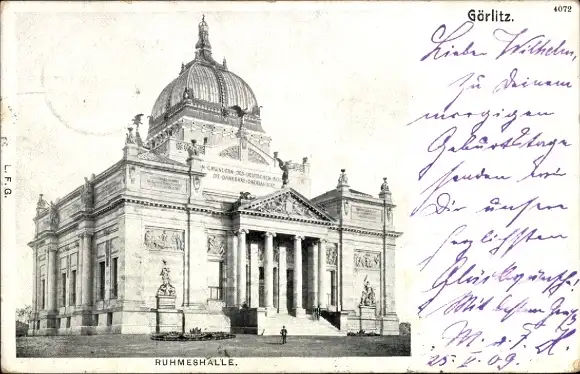 Görlitz.
4072
Lieber Wilhelm,
zu Deinem
morgigen
Geburtstage
senden wir
Dir unsere
herzlichsten
Glückwünsche!
Mit besten
25. V. 09.
L.F.G.
RUHMESHALLE.